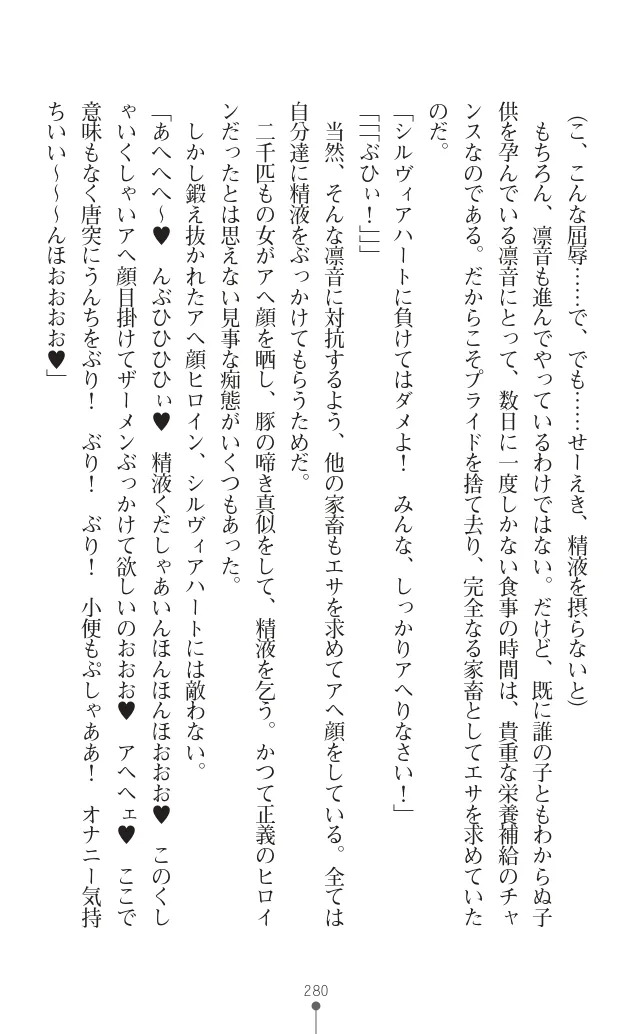 (こ、こんな屈辱……で、でも……せーえき、精液を摂らないと)
　もちろん、凛音も進んでやっているわけではない。だけど、既に誰の子ともわからぬ子
供を孕んでいる凛音にとって、数日に一度しかない食事の時間は、貴重な栄養補給のチャ
ンスなのである。だからこそプライドを捨て去り、完全なる家畜としてエサを求めていた
のだ。
「シルヴィアハートに負けてはダメよ！　みんな、しっかりアヘりなさい！」
「「「ぶひぃ！」」」
　当然、そんな凛音に対抗するよう、他の家畜もエサを求めてアヘ顔をしている。全ては
自分達に精液をぶっかけてもらうためだ。
　二千匹もの女がアヘ顔を晒し、豚の啼き真似をして、精液を乞う。かつて正義のヒロイ
ンだったとは思えない見事な痴態がいくつもあった。
　しかし鍛え抜かれたアヘ顔ヒロイン、シルヴィアハートには敵わない。
「あへへへ～♥　んぶひひひひぃ♥　精液くだしゃあいんほんほんほおおお♥　このくし
ゃいくしゃいアヘ顔目掛けてザーメンぶっかけて欲しいのおおお♥　アヘヘェ♥　ここで
意味もなく唐突にうんちをぶり！　ぶり！　ぶり！　小便もぷしゃああ！　オナニー気持
ちいい～～～んほおおおお♥」
280